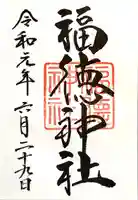 福徳神社
令和元年六月二十九日